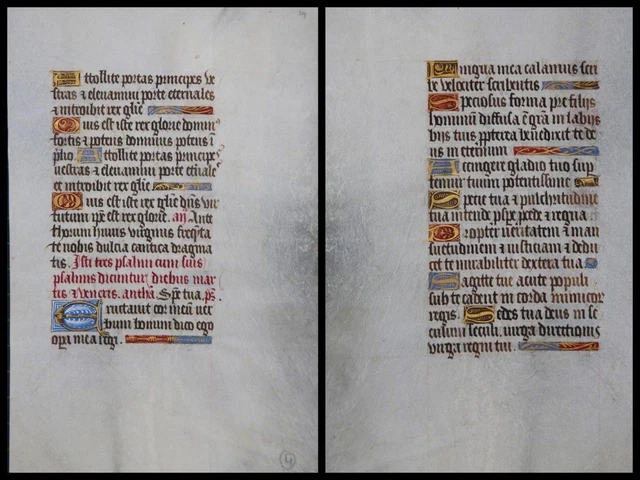 Attollite portas principes ve
stras & elevamini porte eternales
& introibit rex glie
Quis est iste rex glorie domin9
fortis & potens dominus potens i
plio. Attollite portas principes
vestras & elevamini porte et̃nale
et introibit rex glie
Quis est iste rex glie dñs vir
tutum ip̃e est rex glorie. añ. Ante
thorum huius virginis freq̃ta
te nobis dulcia cantica dragma
tis. Isti tres psalmi cum suis
psalmis dicuntur diebus mar
tis & veneris. antha. Spẽ tua. ps.
Eructavit cor meũ ver
bum bonum dico ego
opa mea regi.
Lingua mea calamus scri
be velociter scribentis
Speciosus forma pre filijs
hominũ diffusa ẽ grã in labijs
tuis ppterea bñdixit te de
us in eternum
Accingere gladio tuo sup
femur tuum potentissime
Specie tua & pulchritudine
tua intende pspe pcede & regna
Propter veritatem & man
suetudinem & iusticiam & dedu
cet te mirabiliter dextera tua
Sagitte tue acute populi
sub te cadent in corda inimicor
regis. Sedes tua deus in se
culum seculi. virga directionis
virga regni tui.